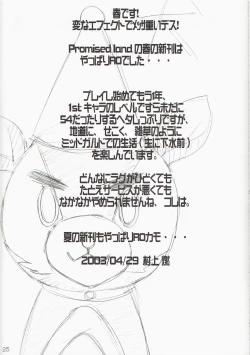 春です!
変なエフェクトでメッガ重いデス!
Promised landの春の新刊は
やっぱりROでした・・・
プレイし始めてもう1年、
1stキャラのレベルです5未だに
54だったりするヘタレっぷりですが、
地道に、せこく、雑草のように
ミッドガルドでの生活(主に下水前)
を楽しんでいます。
どんなにラグがひどくても
たとえサービスが悪くても
なかなかやめられませんね、コレは。
夏の新刊もやっぱりROカモ・・・
2003/04/29 村上
25